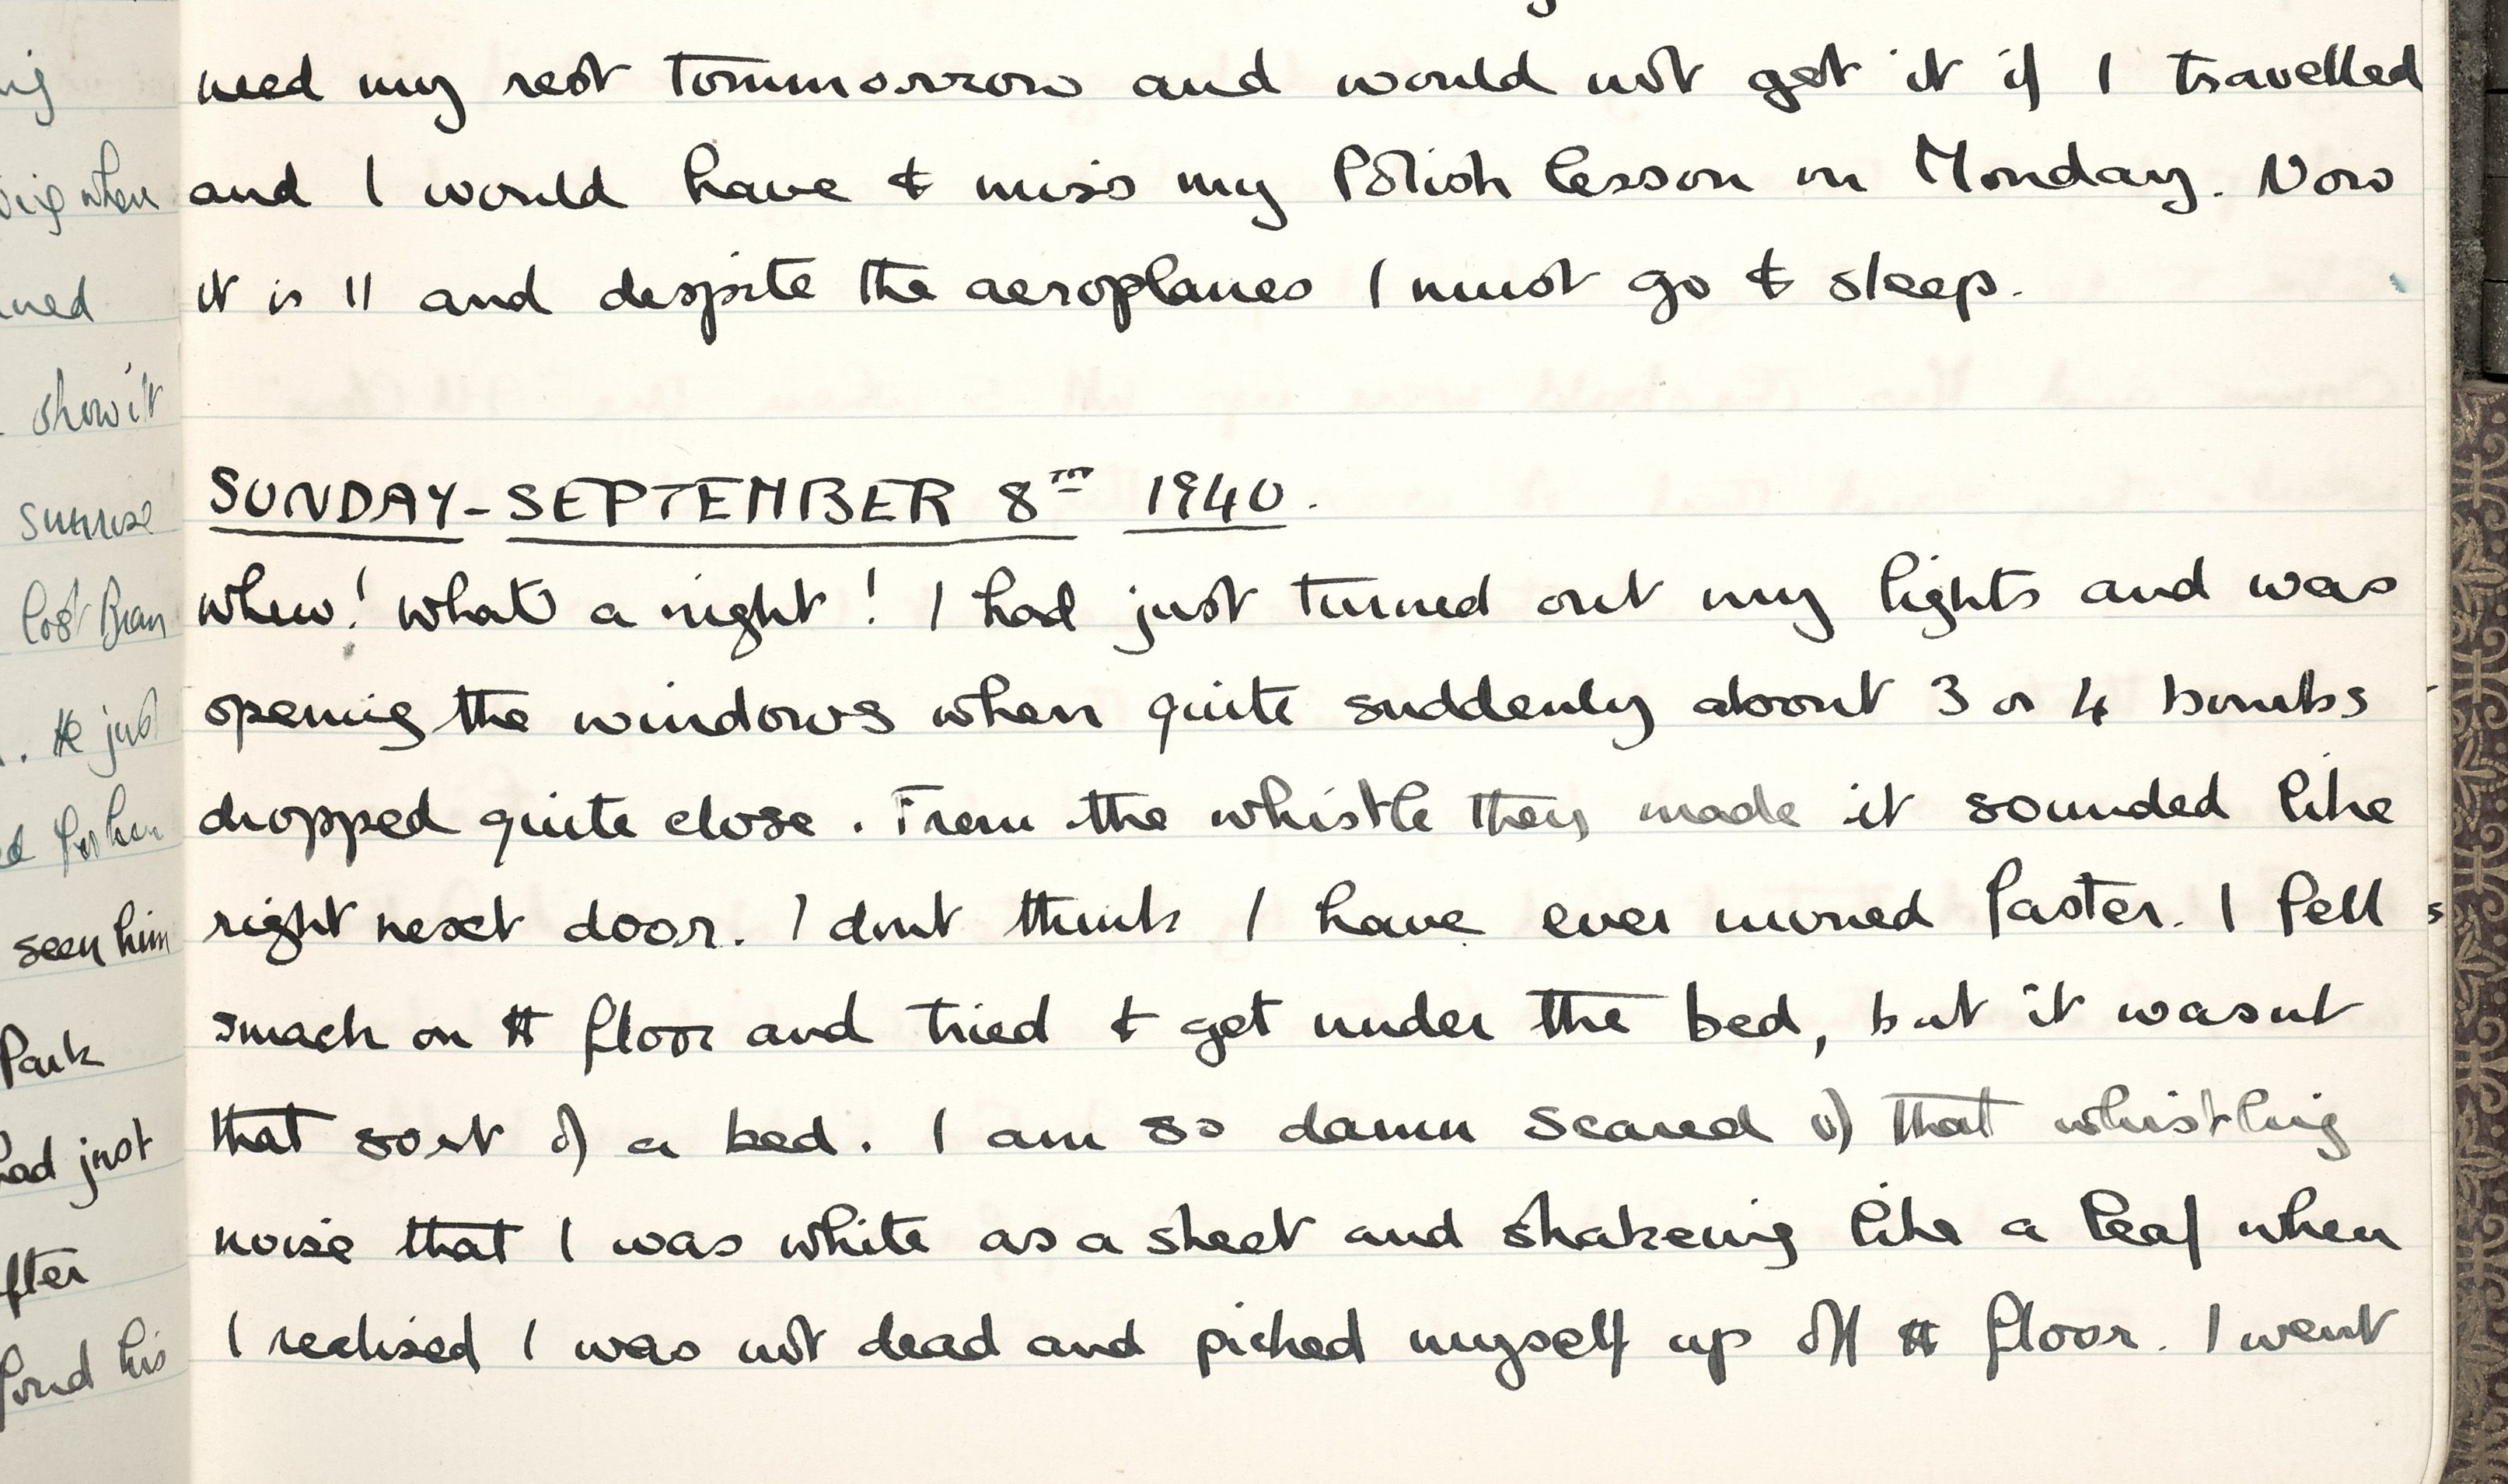 ig
need my rest tommorrow and would not get it if I travelled
when and I would have & miss my Polish lesson on Monday. Now
ined it is 11 and despite the aeroplanes I must go & sleep.
show it
SUNDAY - SEPTEMBER 8TH 1940.
sunrise
whew! what a night! I had just turned out my lights and was
lost Bran
opening the windows when quite suddenly about 3 or 4 bombs
. He just
dropped quite close. From the whistle they made it sounded like
for her
right next door. I dont think I have ever moved faster. I fell
seen him
smack on tt floor and tried & get under the bed, but it wasnt
Park
that sort of a bed. I am so damn scared of that whistling
had just
noise that I was white as a sheet and shakeing like a leaf when
fter
I realised I was not dead and picked myself up off tt floor. I went
found his